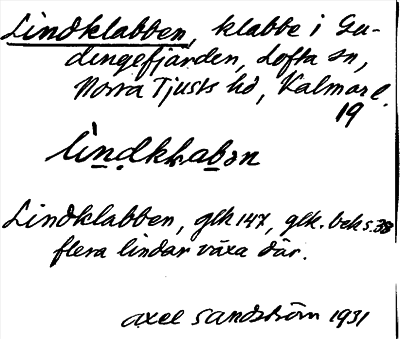 Lindklabben, klabbe i Gu-
dingefjärden, Lofta sn,
Norra Tjusts hd, Kalmar l.
19
Lindklabben, glk 147, glk. besk s. 38
flera lindar växa där.
Axel Sandström 1931